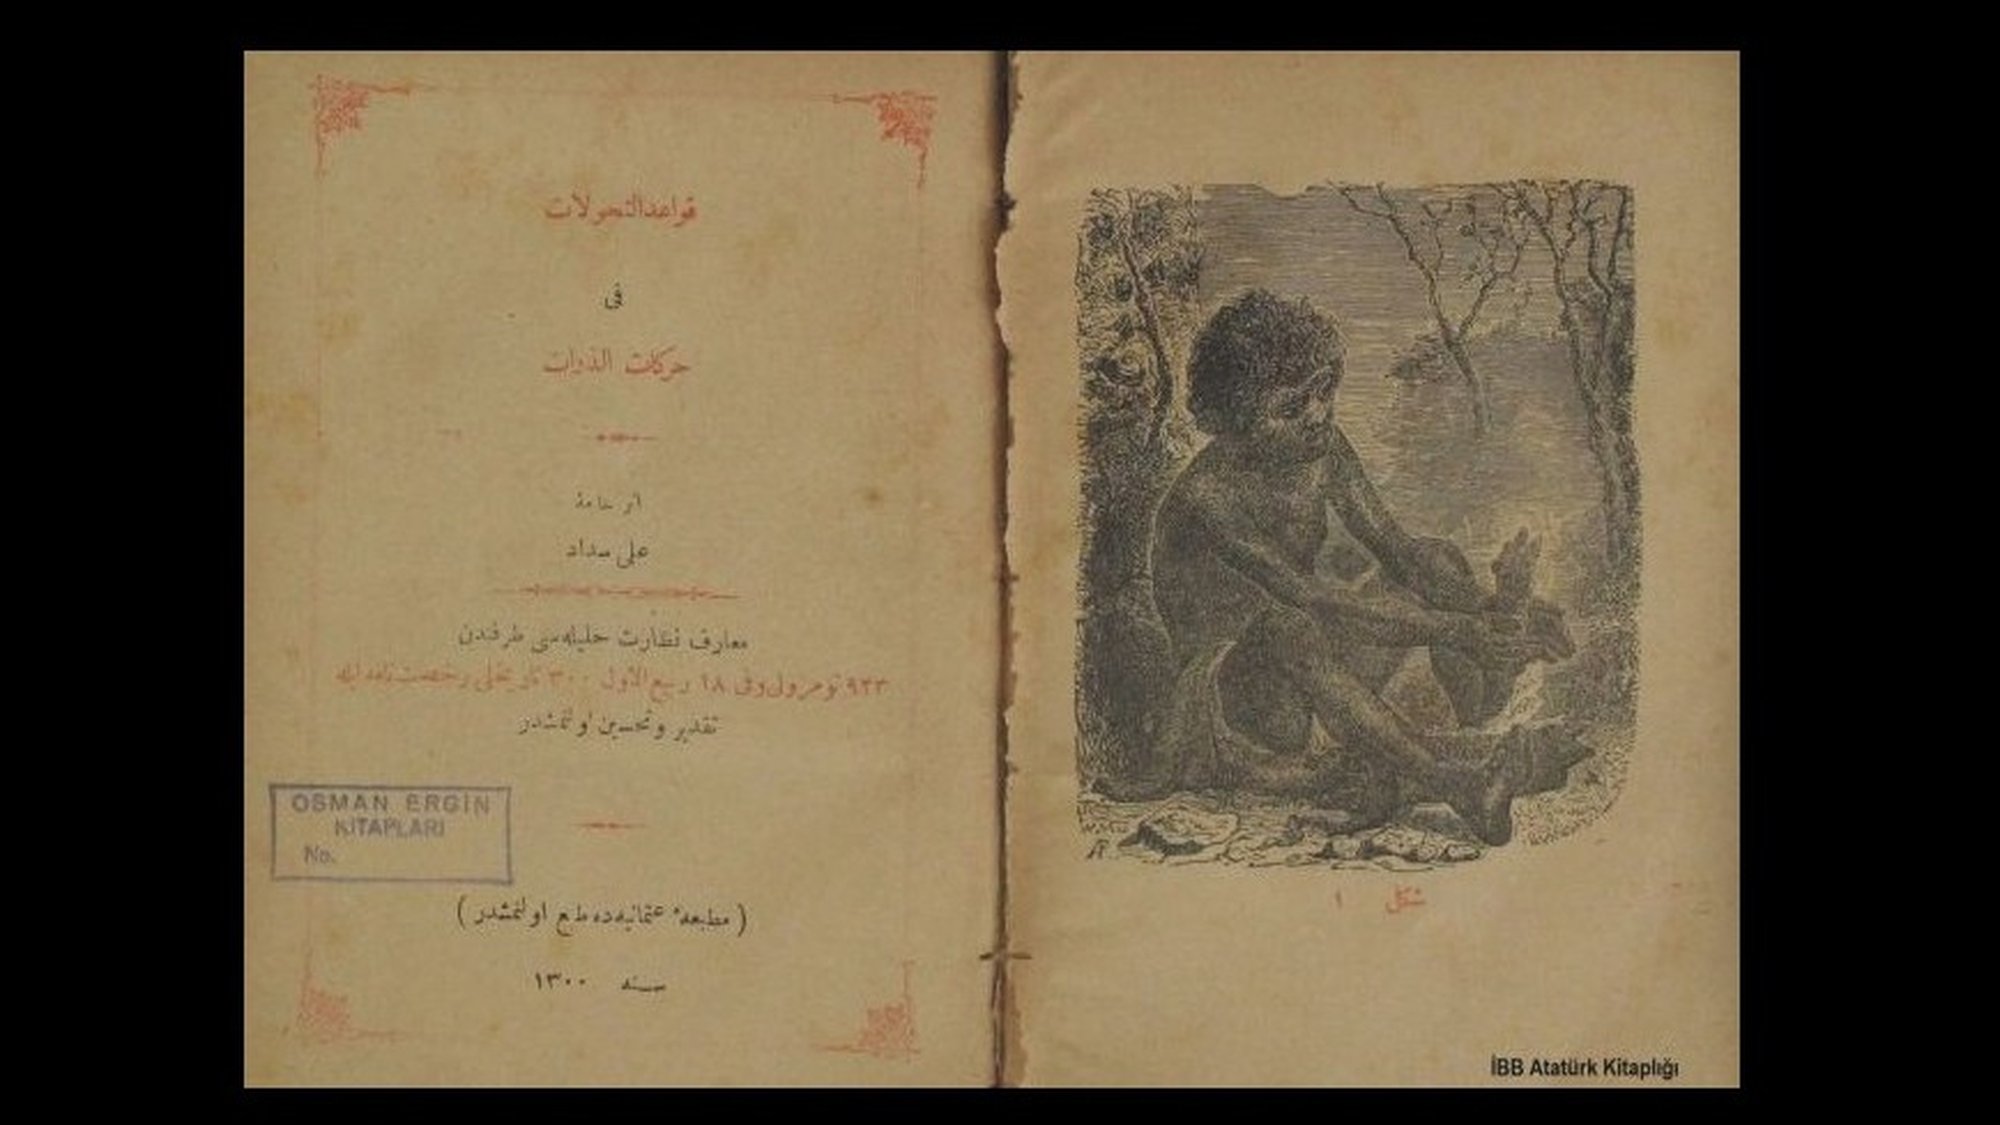 قواعد التحولات
فی
حرکات الذرات
اثر خامهٔ
علی سداد
معارف نظارت جلیله‌سی طرفندن
٩٢٣ نومرولی وفی ١٨ ربیع الاول ٣٠٠ تاریخلی رخصتنامه ایله
تقدیر و تحسین اولنمشدر
OSMAN ERGİN
KİTAPLARI
No.
( مطبعهٔ عثمانیه‌ده طبع اولنمشدر )
سنه ١٣٠٠
شکل ١
İBB Atatürk Kitaplığı